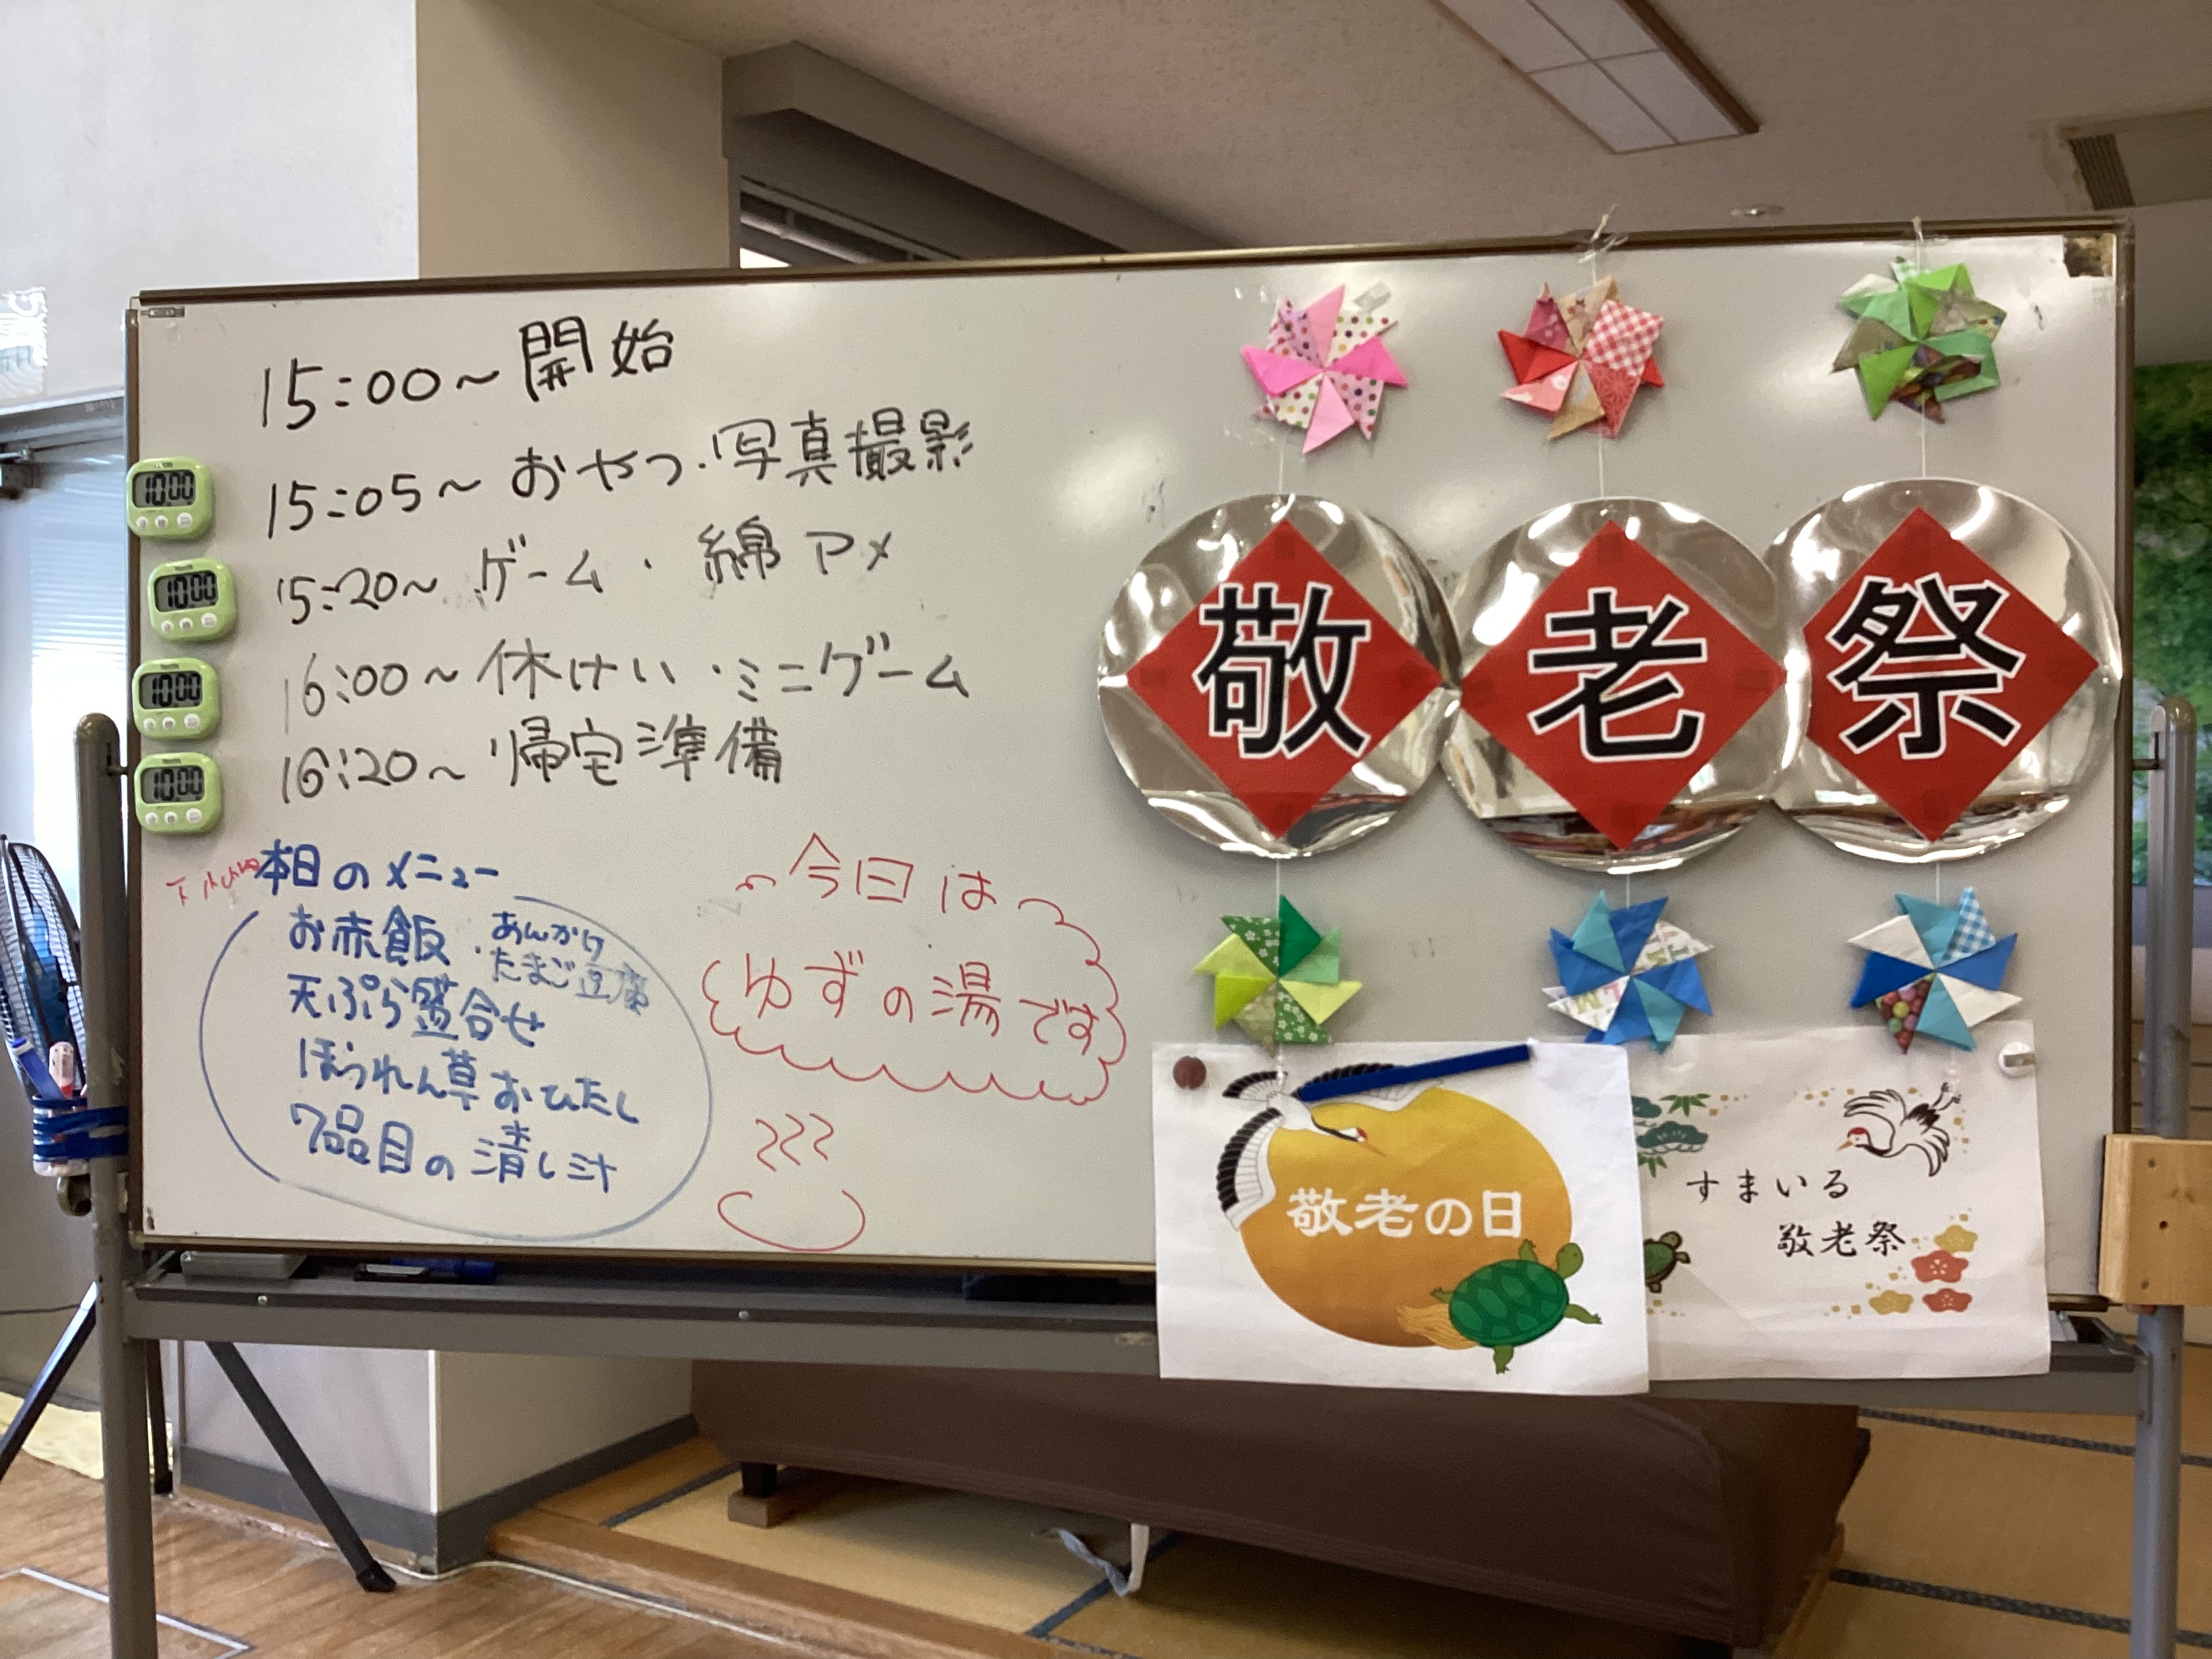 15:00～開始
15:05～おやつ・写真撮影
15:20～ゲーム・綿アメ
16:00～休けい・ミニゲーム
16:20～帰宅準備
10:00
10:00
10:00
10:00
本日のメニュー
お赤飯
・あんかけ
たまご豆腐
天ぷら盛合せ
ほうれん草おひたし
7品目の清し汁
今日は
ゆずの湯です
敬老祭
敬老の日
すまいる
敬老祭